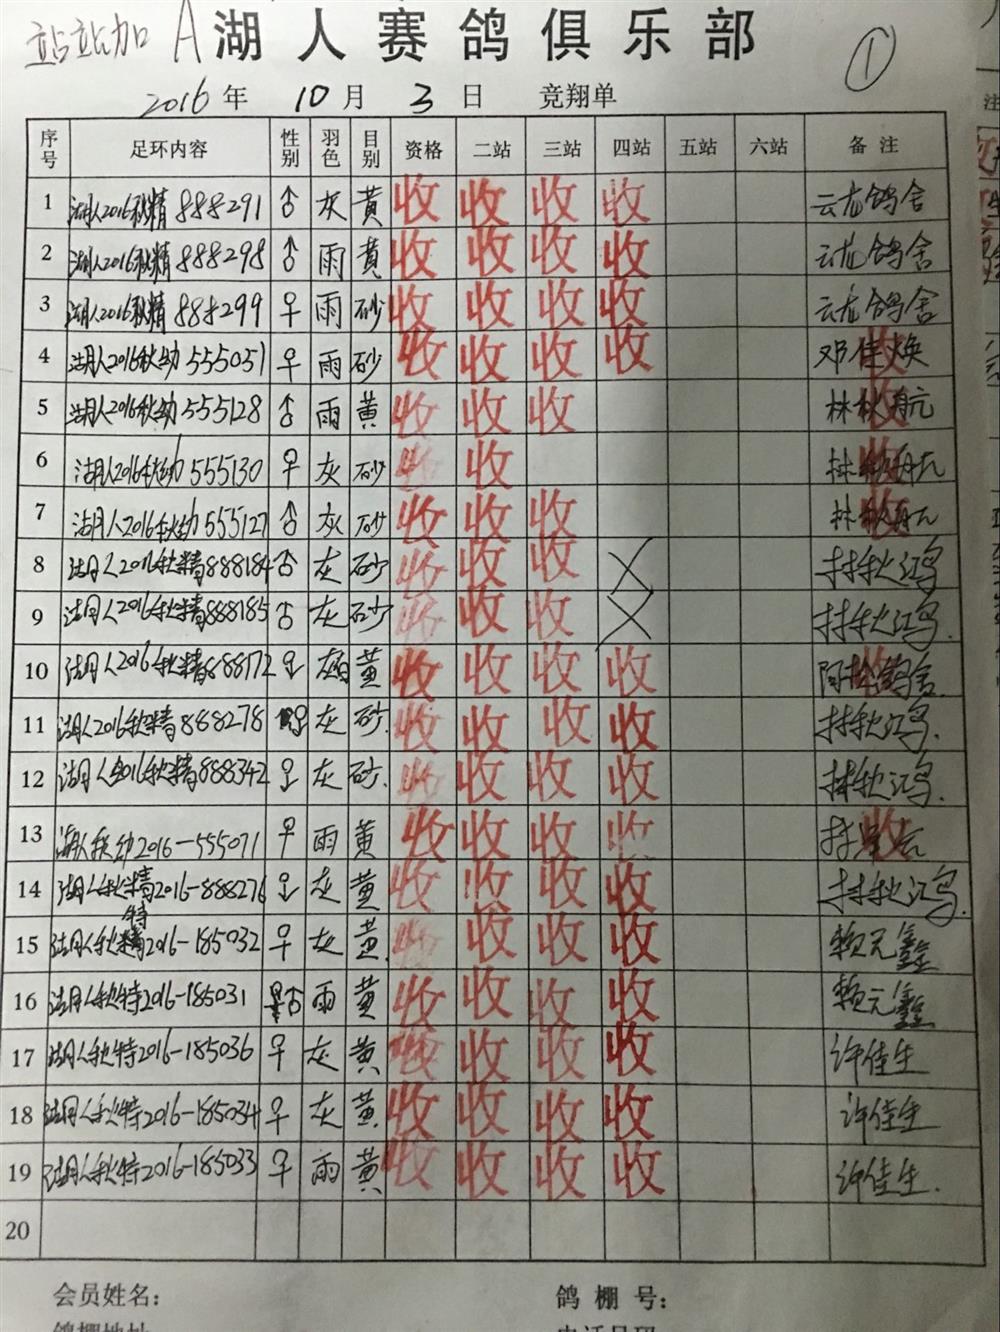 站站加 A 湖人赛鸽俱乐部 ①
2016年 10月 3日 竞翔单
序号 足环内容 性别 羽色 目别 资格 二站 三站 四站 五站 六站 备注
1 湖人2016秋精888291 ♂ 灰 黄 收 收 收 收 云龙鸽舍
2 湖人2016秋精888298 ♂ 雨 黄 收 收 收 收 云龙鸽舍
3 湖人2016秋精888299 ♀ 雨 砂 收 收 收 收 云龙鸽舍
4 湖人2016秋幼555051 ♀ 雨 砂 收 收 收 收 邓佳焕 收
5 湖人2016秋幼555128 ♂ 雨 黄 收 收 收 林秋航 收
6 湖人2016秋幼555130 ♀ 灰 砂 收 收 林秋航 收
7 湖人2016秋幼555127 ♂ 灰 砂 收 收 收 林秋航 收
8 湖人2016秋精888184 ♂ 灰 砂 收 收 收 X 林秋鸿
9 湖人2016秋精888185 ♂ 灰 砂 收 收 收 X 林秋鸿.
10 湖人2016秋精888172 ♀ 黄 收 收 收 收 鸽舍. 收
11 湖人2016秋精888278 ♀ 灰 砂. 收 收 收 收 林秋鸿.
12 湖人2016秋精888342 ♀ 灰 砂. 收 收 收 收 林秋鸿.
13 湖人秋幼2016-555071 ♀ 雨 黄 收 收 收 收 收
14 湖人秋精2016-888276 ♀ 灰 黄 收 收 收 收 林秋鸿.
15 湖人秋特2016-185032 ♀ 灰 黄. 收 收 收 收 赖元鑫
16 湖人秋特2016-185031 ♂ 雨 黄 收 收 收 收 赖元鑫
17 湖人秋特2016-185036 ♀ 灰 黄 收 收 收 收 许佳生
18 湖人秋特2016-185034 ♀ 灰 黄. 收 收 收 收 许佳生
19 湖人秋特2016-185033 ♀ 雨 黄 收 收 收 收 许佳生.
20
会员姓名： 鸽棚号：
鸽棚地址 电话号码